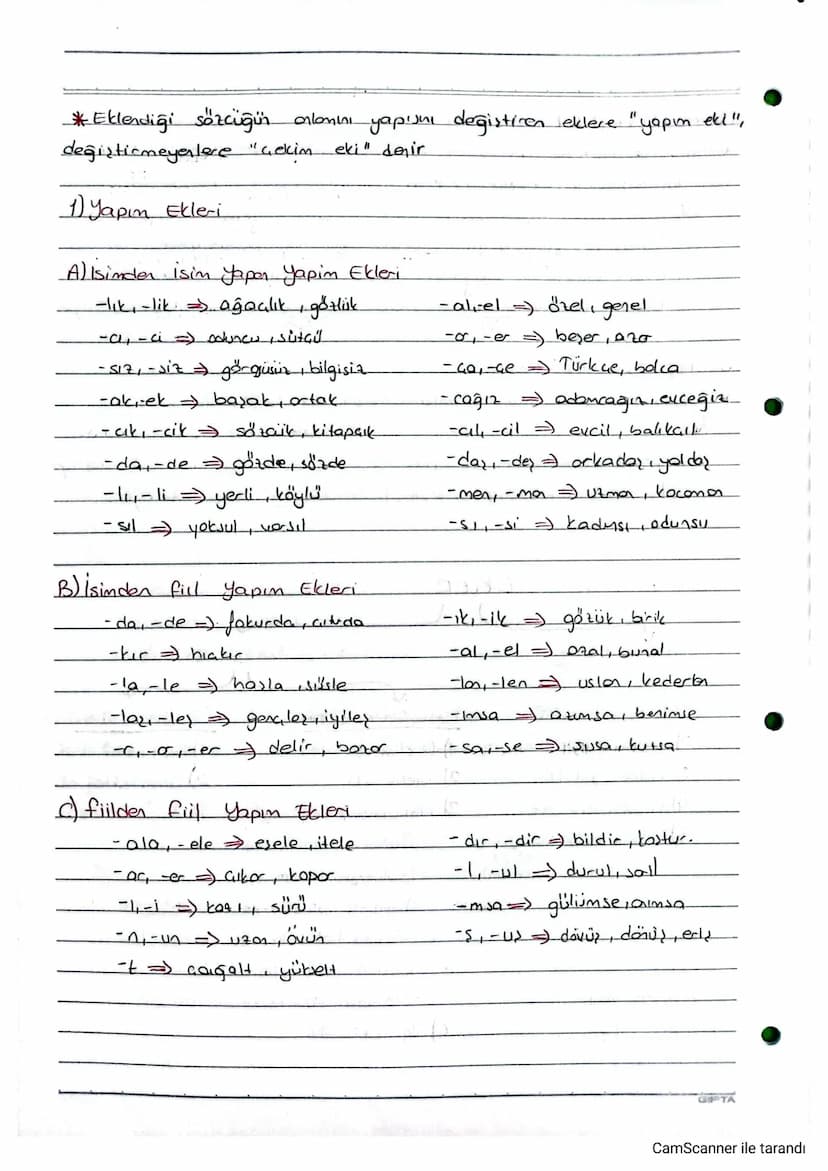 * Eklendiği sözcüğün anlamını yapısını değiştiren eklere "yapım eki",
değiştirmeyenlere "çekim eki" denir
1) Yapım Ekleri
A) İsimden isim Yapan Yapım Ekleri
-lık, -lik => ağaçlık, gözlük
-al, -el => özel, genel
-cı, -ci => oduncu, sütçü
-ar, -er => beşer, azar
-sız, -siz => görgüsüz, bilgisiz
-ca, -çe => Türkçe, bolca
-ak, -ek => başak, ortak
-cağız => adamcağız, evceğiz
-cık, -cik => sözcük, kitapçık
-cıl, -cil => evcil, balıkçıl
-da, -de => gözde, sözde
-daş, -deş => arkadaş, yoldaş
-lı, -li => yerli, köylü
-men, -man => uzman, kocaman
-sıl => yoksul, varsıl
-sı, -si => kadınsı, odunsu
B) İsimden fiil Yapım Ekleri
-da, -de => fokurda, çıtırda
-ık, -ik => gözük, birik
-kır => hıçkır
-al, -el => azal, bunal
-la, -le => haşla, süsle
-lan, -len => uslan, kederlen
-laş, -leş => gençleş, iyileş
-ımsa => azımsa, benimse
-r, -ar, -er => delir, bozar
-sa, -se => susa, kursa
C) fiilden fiil Yapım Ekleri
-ala, -ele => eşele, itele
-dır, -dir => bildir, koştur.
-ar, -er => çıkar, kopar
-l, -ul => durul, sarıl
-ı, -i => kazı, sürü
-msa => gülümse, anımsa
-n, -un => uzan, övün
-ş, -uş => dövüş, dönüş, eriş
-t => çoğalt, yükselt
GIPTA
CamScanner ile tarandı